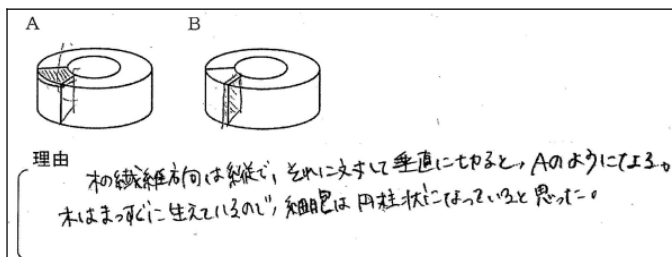 A B
理由
木の繊維方向は縦で、それに対して垂直に切ると、Aのようになる。
木はまっすぐに生えているので、細胞は円柱状になっていると思った。